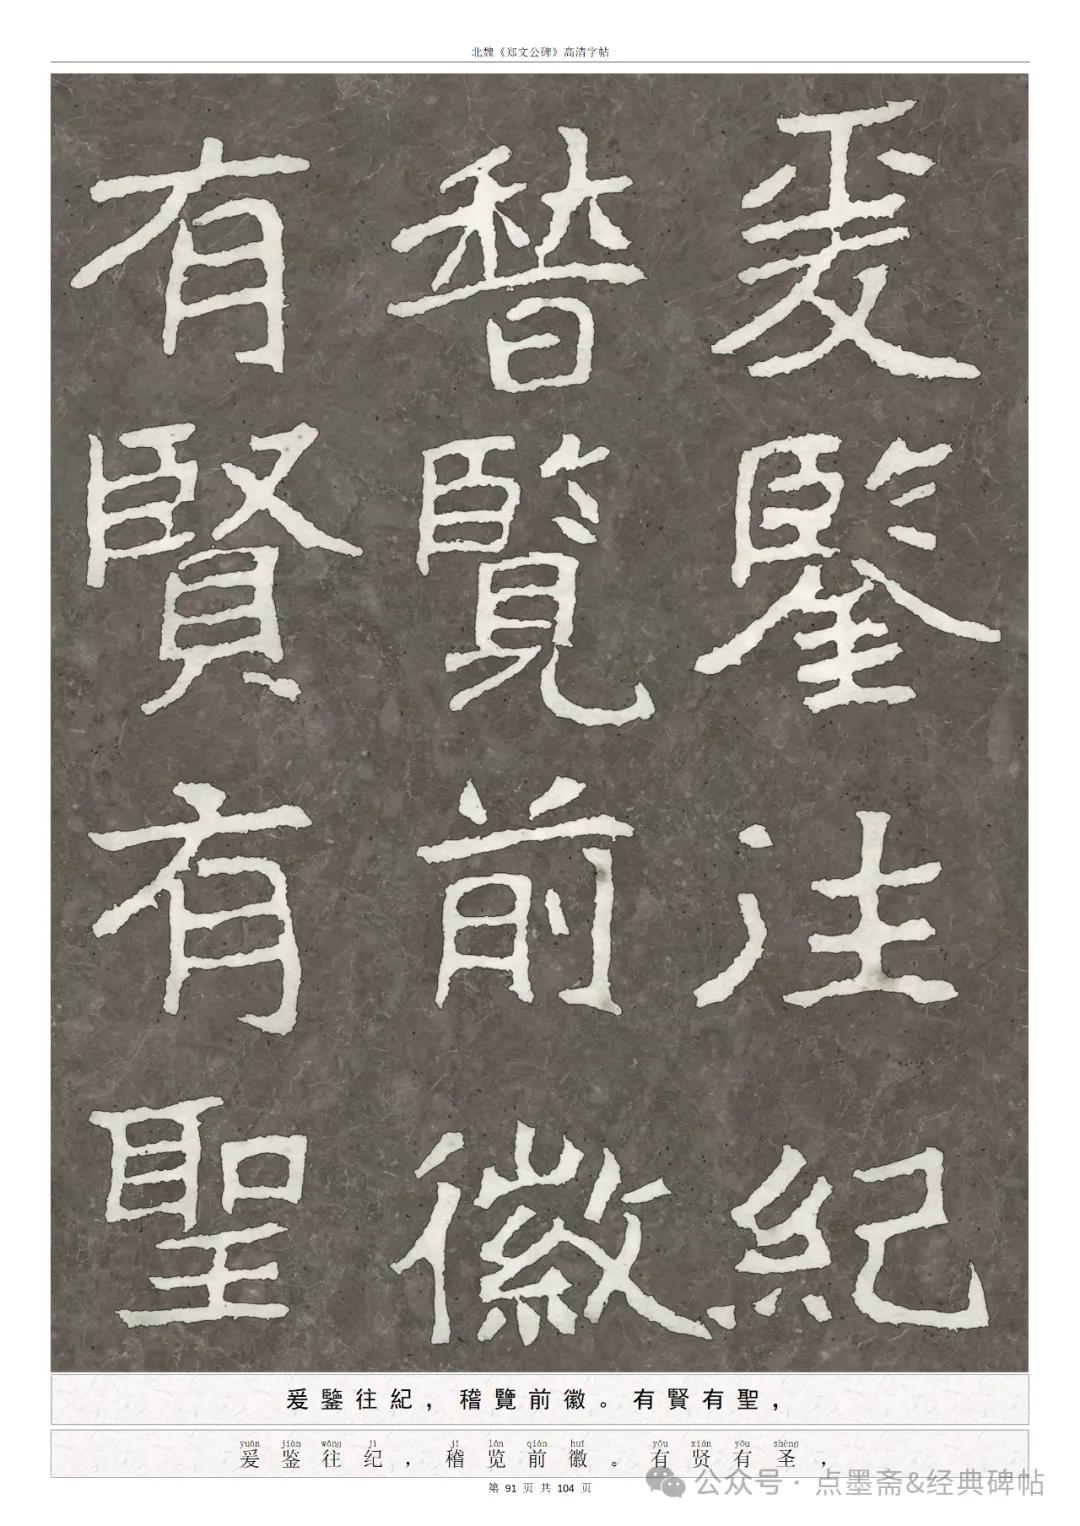 北魏《郑文公碑》高清字帖
爰鑒往紀
稽覽前徽
有賢有聖
爰鑒往紀，稽覽前徽。有賢有聖，
yuán jiàn wǎng jì jī lǎn qián huī yǒu xián yǒu shèng
爰鉴往纪，稽览前徽。有贤有圣，
第 91 页 共 104 页
公众号 · 点墨斋&经典碑帖